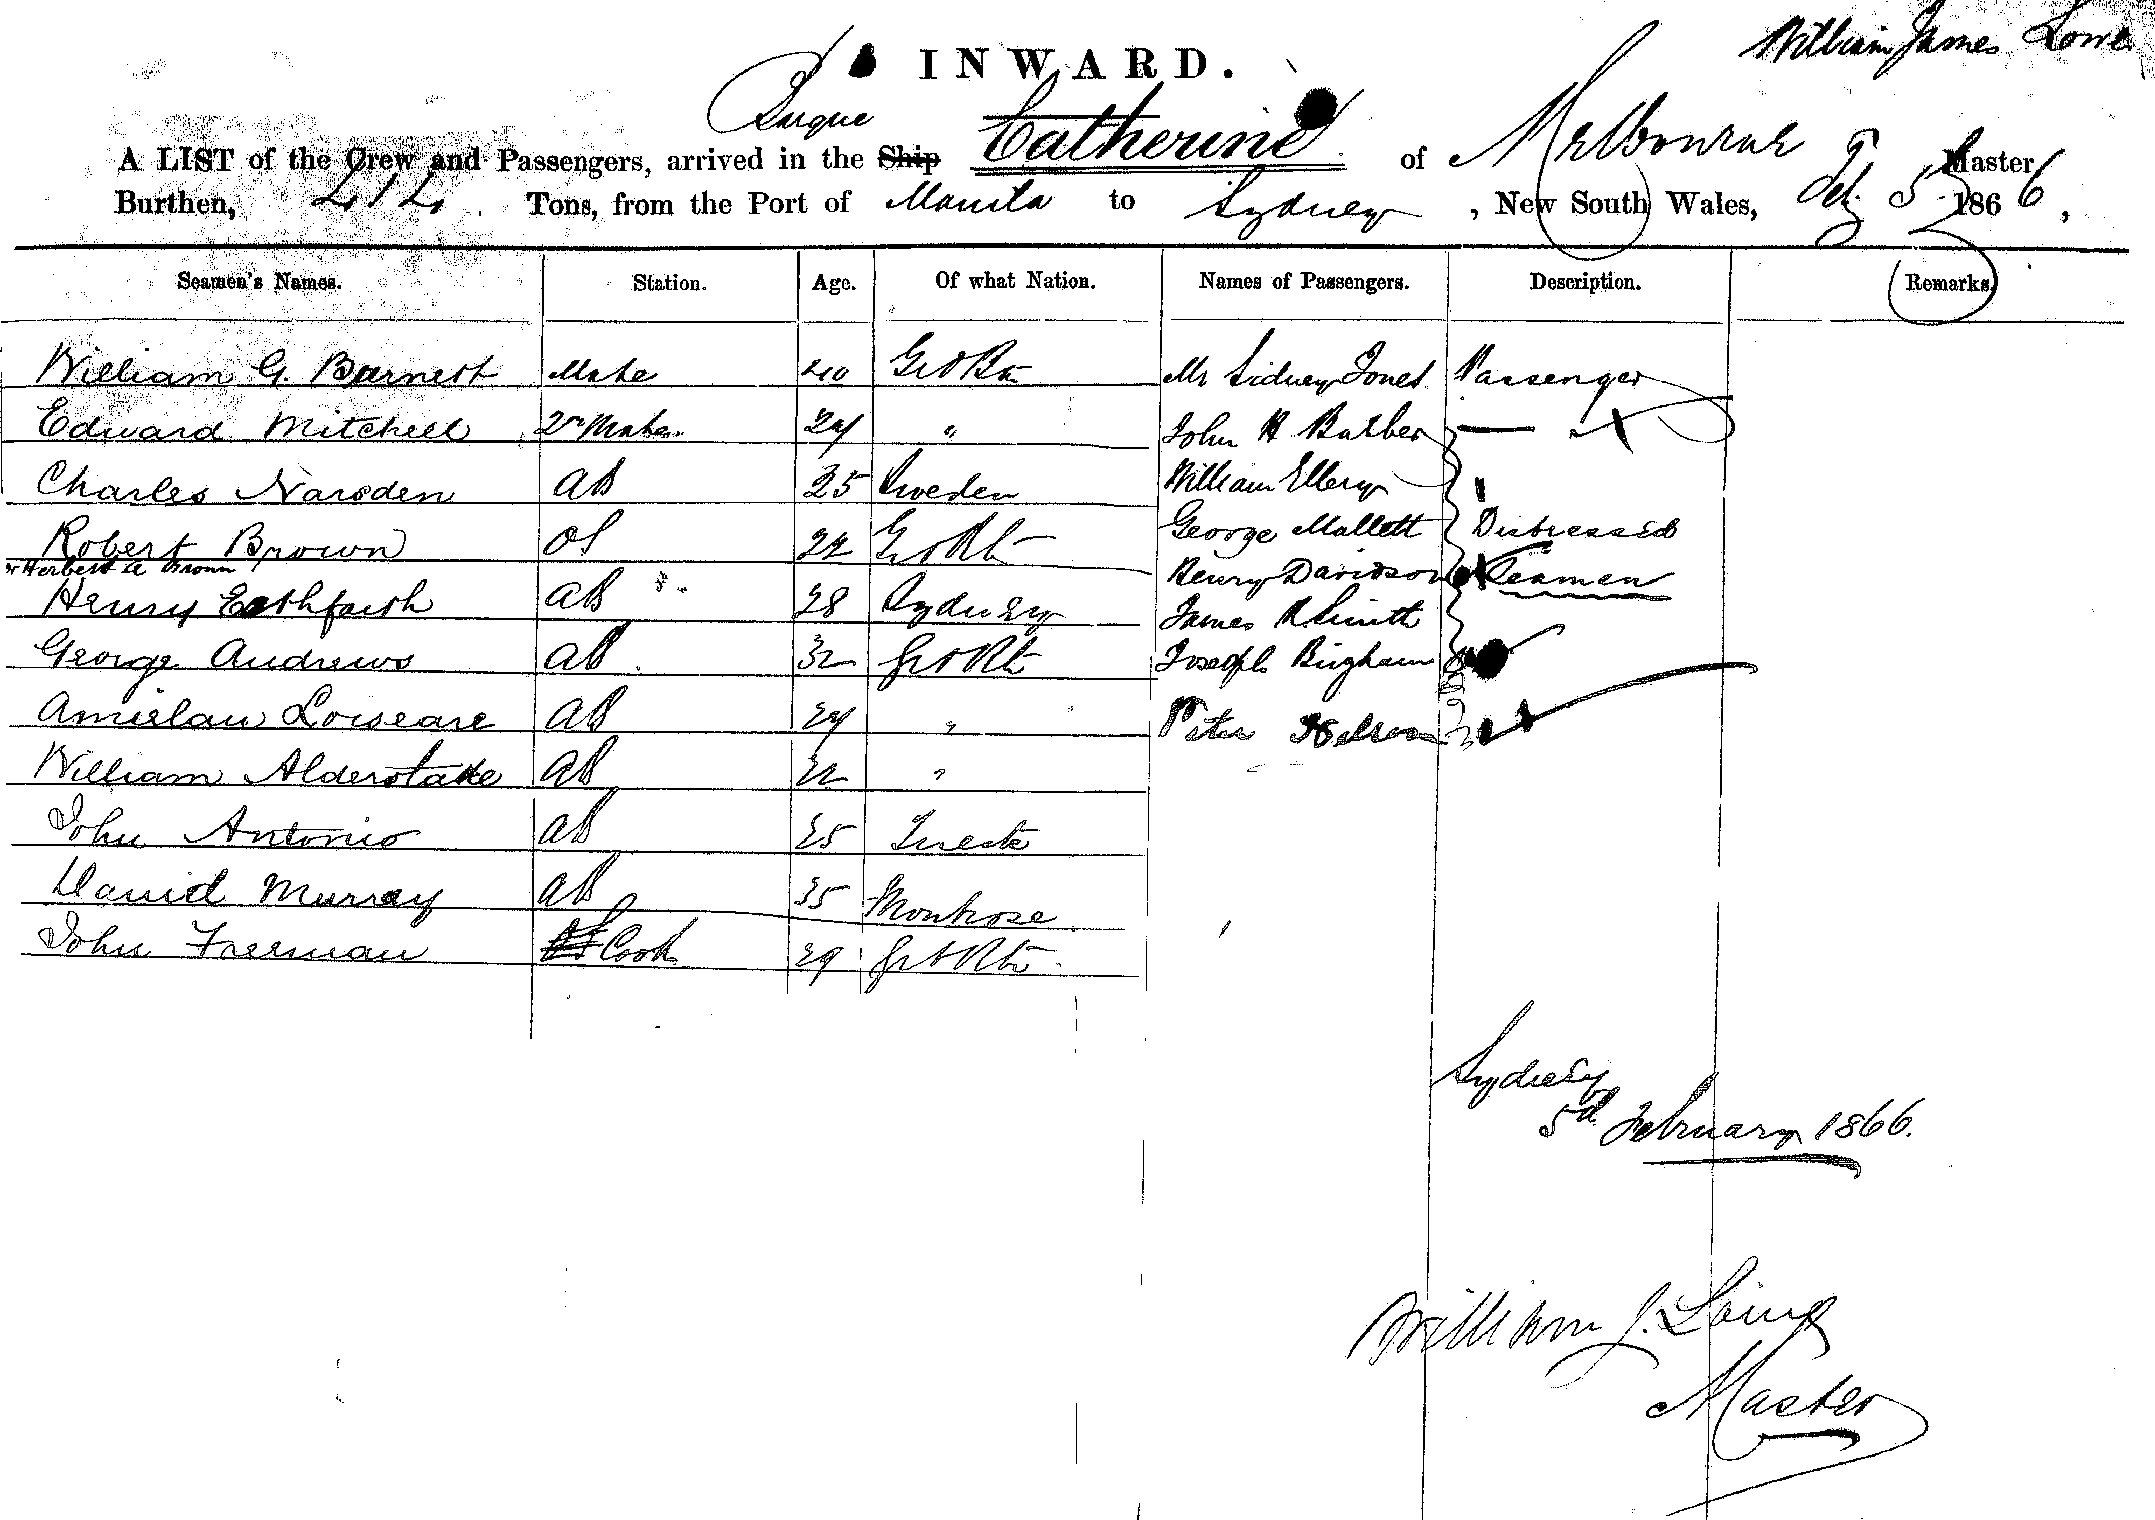 William James
INWARD.
Barque
A LIST of the Crew and Passengers, arrived in the Ship Catherine of Melbourne Master
Burthen, 212 Tons, from the Port of Manila to Sydney, New South Wales, Feb 5 1866,
Seamen's Names. Station. Age. Of what Nation. Names of Passengers. Description. Remarks.
William G. Barnett Mate 40 Gt Bn Mr Sidney Jones Passenger
Edward Mitchell 2nd Mate 24 " John H Barber
Charles Narsden AB 25 Sweden William Ellery
Robert Brown OS 22 Gt Bt George Mallett Distressed
or Herbert A Brown Henry Davidson Seamen
Henry AB 28 Sydney James R Smith
George Andrews AB 32 Gt Bt Joseph Bingham
AB 24 " Peter
William AB 22 "
John Antonio AB 25 Trieste
David Murray AB 35 Montrose
John Freeman OS Cook 29 Gt Bt
Sydney
5d February 1866.
William J.
Master